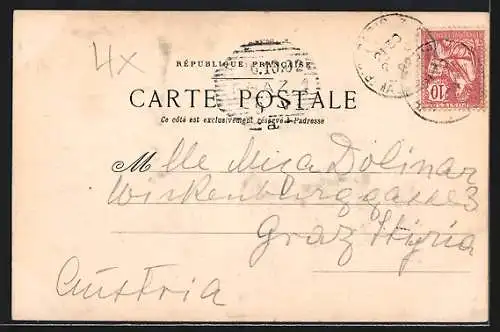 4x
RÉPUBLIQUE FRANÇAISE
CARTE POSTALE
Ce côté est exclusivement réservé à l'adresse
Mlle Mica Dolinar
Wickenburggasse 3
Graz Styria
Austria
10